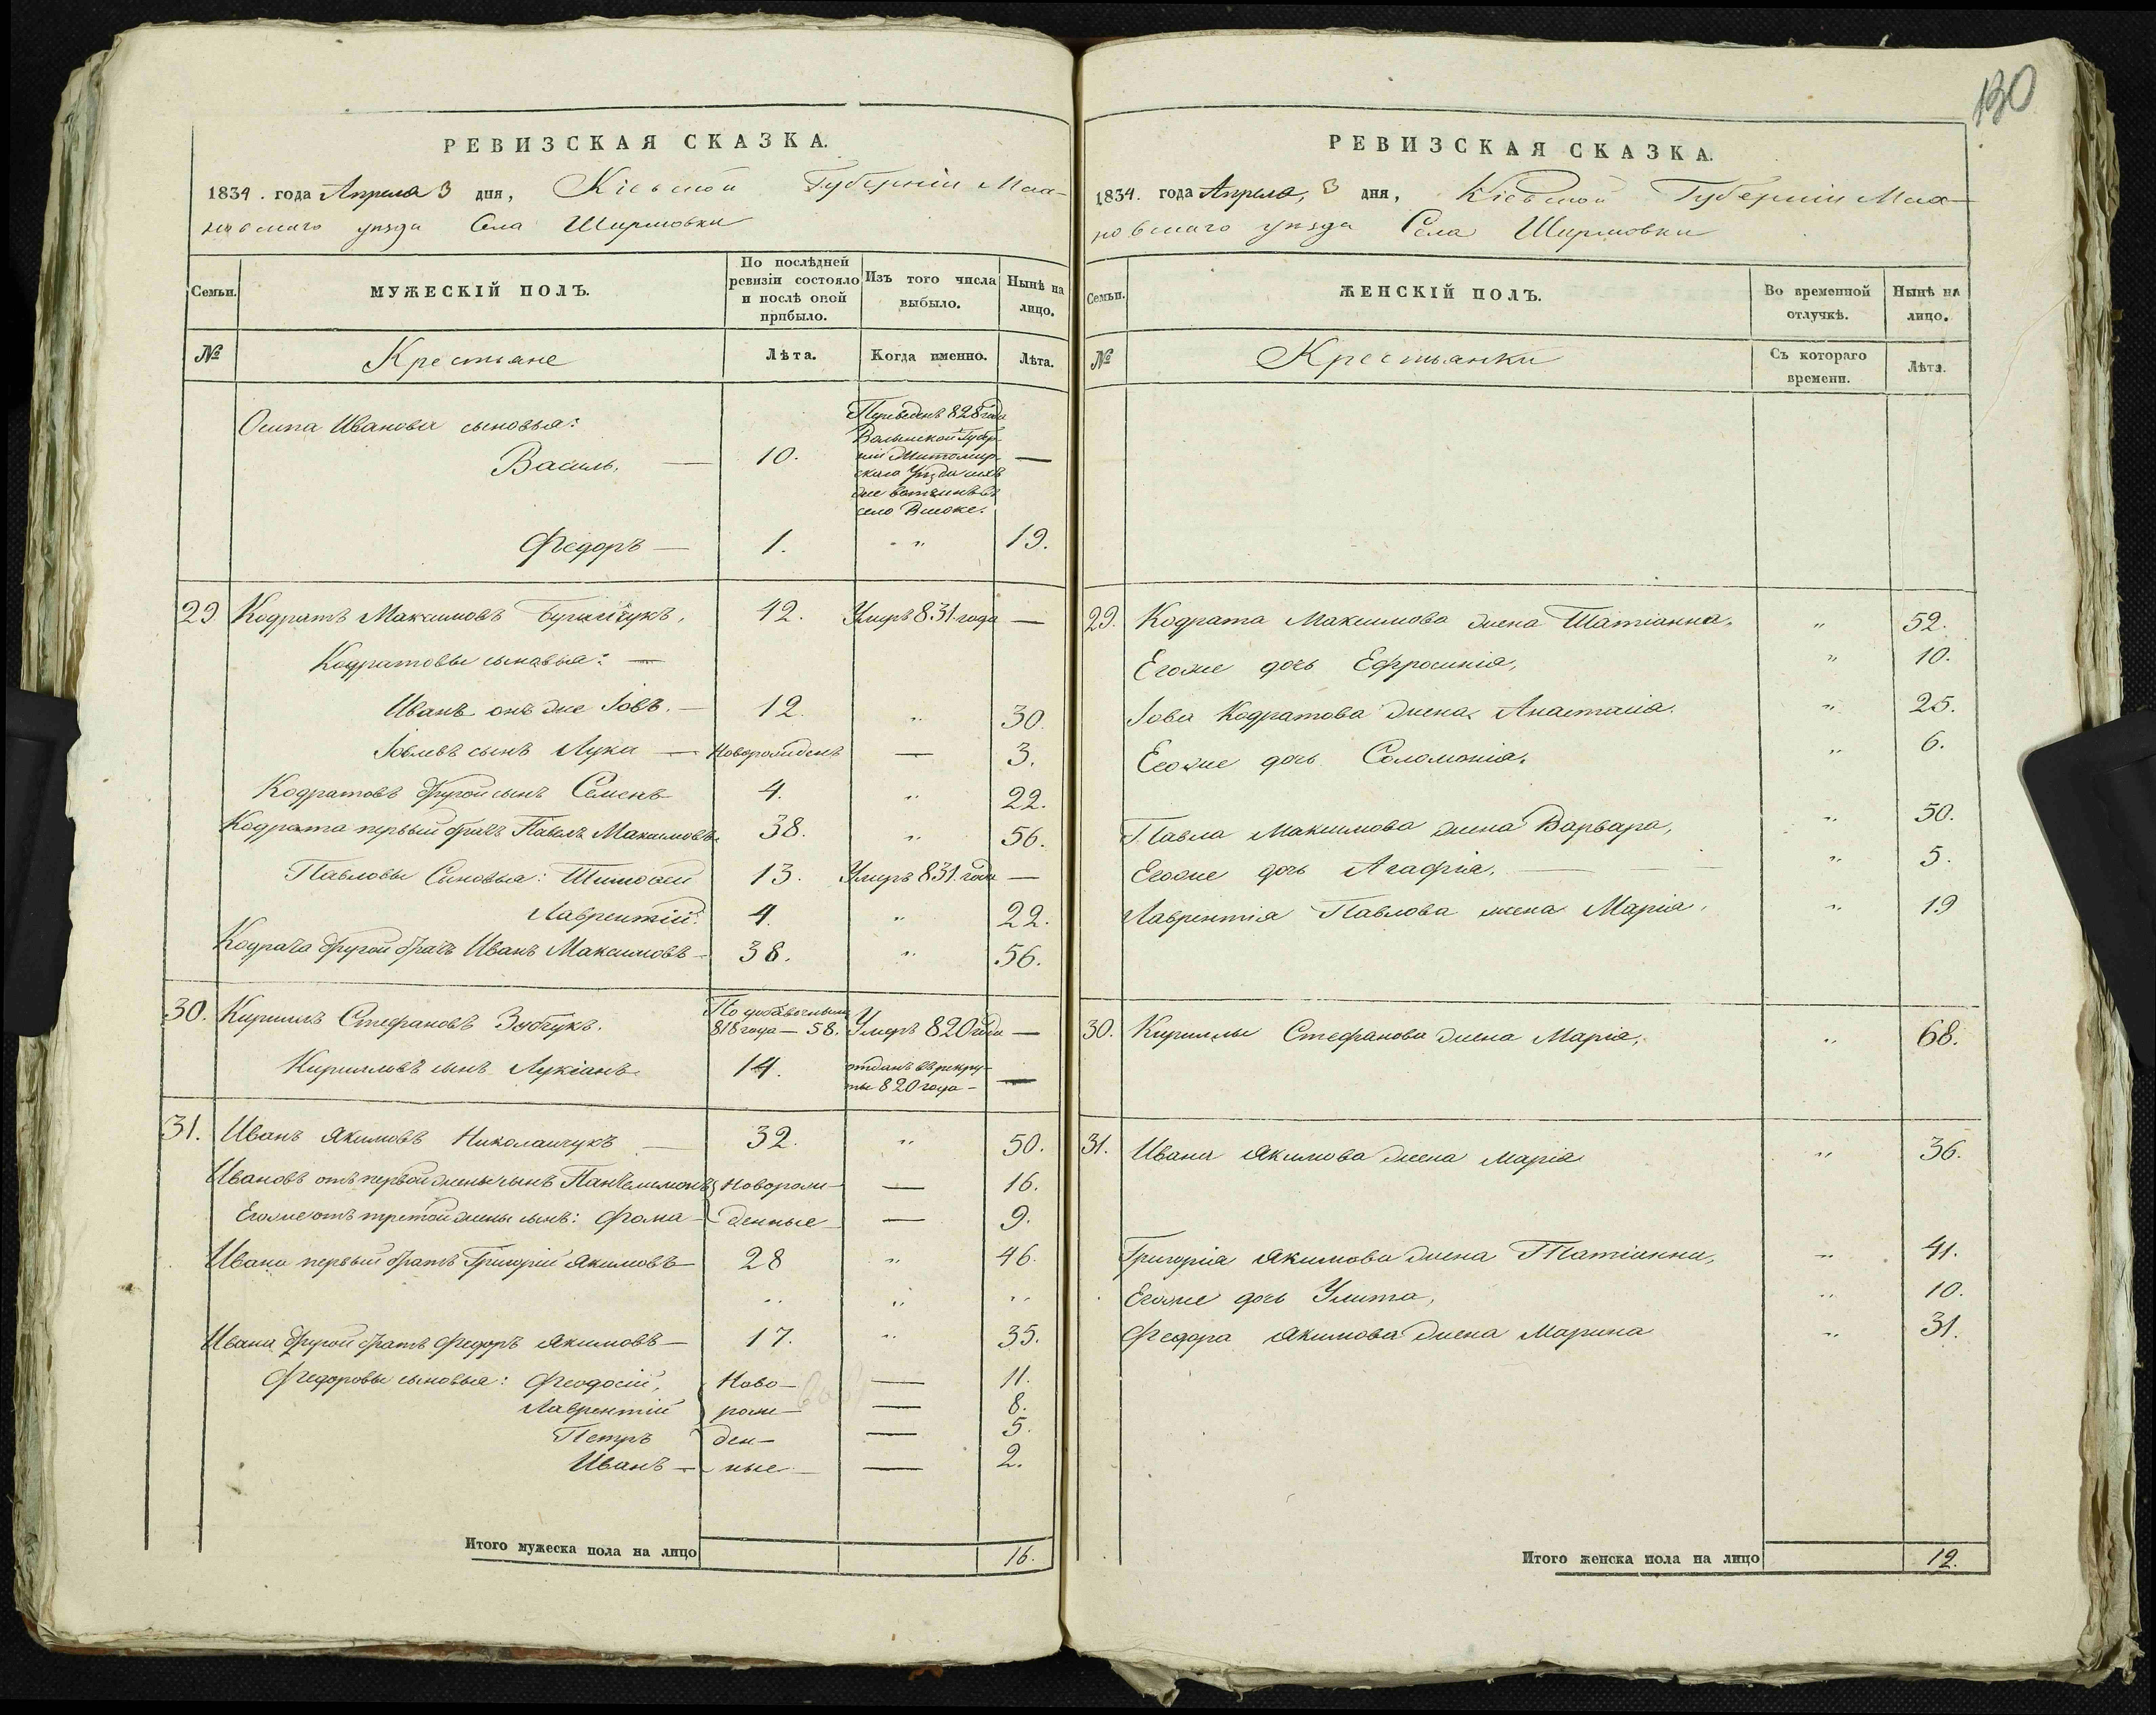 130
РЕВИЗСКАЯ СКАЗКА.
1834. года Апреля 3 дня, Кіевской Губерніи Мах-
новскаго уезда Села Ширмовки
Семьи.
МУЖЕСКІЙ ПОЛЪ.
По послѣдней ревизіи состояло и послѣ оной прибыло.
Изъ того числа выбыло.
Нынѣ на лицо.
№
Крестьяне
Лѣта.
Когда именно.
Лѣта.
Осипа Иванова сыновья:
Василь, — 10. Переведенъ 828 года
Волынской Губер-
ніи Житомир-
скаго Уезда
село Высоке. —
Федоръ — 1. " 19.
29 Кодратъ Максимовъ 42. Умеръ 831 года —
Кодратовы сыновья: —
Иванъ онъ же Іовъ. — 12. " 30.
Іовлевъ сынъ Лука — Новорожденъ — 3.
Кодратовъ другой сынъ Семенъ 4. " 22.
Кодрата первый братъ Павелъ Максимовъ 38. " 56.
Павловы Сыновья: Тимофей 13. Умеръ 831. года —
Лаврентій. 4. " 22.
Кодрата другой братъ Иванъ Максимовъ — 38. " 56.
30. Кирилъ Стефановъ Зубчукъ. По добавочнымъ
818 года — 58. Умеръ 820 года —
Кирилловъ сынъ Лукіанъ. 14. отданъ въ рекру-
ты 820 года — —
31. Иванъ Якимовъ Николайчукъ — 32. " 50.
Ивановъ отъ первой жены сынъ Пантелимонъ Новорож- — 16.
Егоже отъ третой жены сынъ: Фома — денные — 9.
Ивана первый братъ Григорій Якимовъ — 28 " 46.
" " "
Ивана другой братъ Федоръ Якимовъ — 17. " 35.
Федоровы сыновья: Феодосій, Ново- — 11.
Лаврентій рож- — 8.
Петръ ден- — 5.
Иванъ — ные — 2.
Итого мужеска пола на лицо 16.
РЕВИЗСКАЯ СКАЗКА.
1834. года Апреля, 3 дня, Кіевской Губерніи Мах-
новскаго уезда Села Ширмовки
Семьи.
ЖЕНСКІЙ ПОЛЪ.
Во временной отлучкѣ.
Нынѣ на лицо.
№
Крестьянки
Съ котораго времени.
Лѣта.
29. Кодрата Максимова жена Татіанна, " 52.
Егоже дочь Ефросинія, " 10.
Іова Кодратова жена Анастасіа. " 25.
Егоже дочь Соломонія. " 6.
Павла Максимова жена Варвара, " 50.
Егоже дочь Агафія. — " 5.
Лаврентія Павлова жена Марія, " 19
30. Кириллы Стефанова жена Марія, " 68.
31. Ивана Якимова жена Марія " 36.
Григорія Якимова жена Татіанна, " 41.
Егоже дочь Улита, " 10.
Федора Якимова жена Марина " 31.
Итого женска пола на лицо 12.